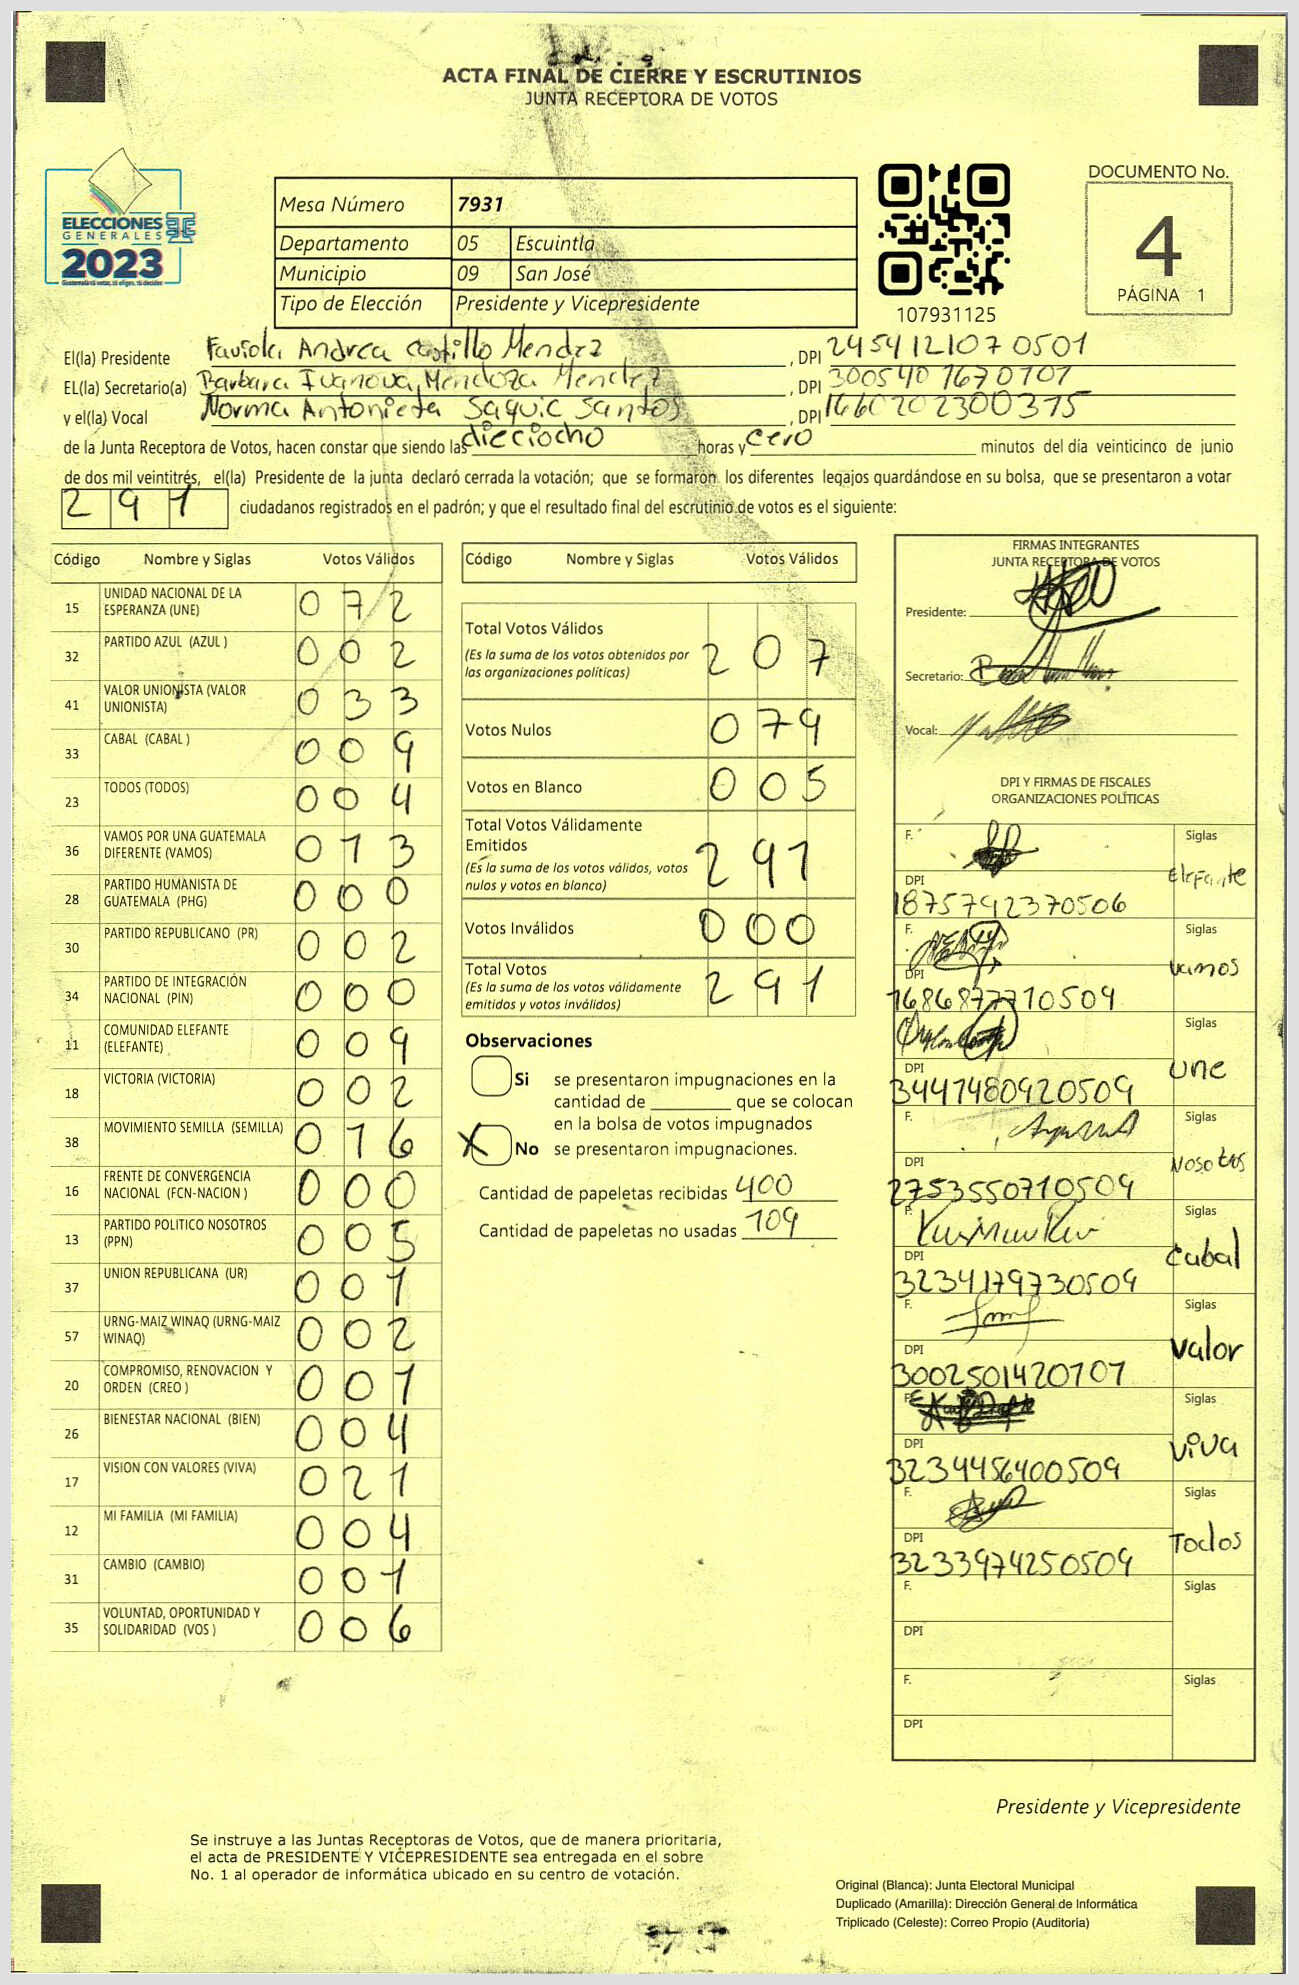 ACTA FINAL DE CIERRE Y ESCRUTINIOS
JUNTA RECEPTORA DE VOTOS
ELECCIONES
GENERALES
2023
Mesa Número 7931
Departamento 05 Escuintla
Municipio 09 San José
Tipo de Elección Presidente y Vicepresidente
107931125
DOCUMENTO No.
4
PÁGINA 1
El(la) Presidente Faviola Andrea Castillo Mendez, DPI 2454121070501
EL(la) Secretario(a) Barbara Ivanova Mendoza Mendez, DPI 3005401670101
y el(la) Vocal Norma Antonieta Saquic Santos, DPI 1660202300375
de la Junta Receptora de Votos, hacen constar que siendo las dieciocho horas y cero minutos del día veinticinco de junio
de dos mil veintitrés, el(la) Presidente de la junta declaró cerrada la votación; que se formaron los diferentes legajos guardándose en su bolsa, que se presentaron a votar
291 ciudadanos registrados en el padrón; y que el resultado final del escrutinio de votos es el siguiente:
Código Nombre y Siglas Votos Válidos
15 UNIDAD NACIONAL DE LA ESPERANZA (UNE) 072
32 PARTIDO AZUL (AZUL ) 002
41 VALOR UNIONISTA (VALOR UNIONISTA) 033
33 CABAL (CABAL ) 009
23 TODOS (TODOS) 004
36 VAMOS POR UNA GUATEMALA DIFERENTE (VAMOS) 013
28 PARTIDO HUMANISTA DE GUATEMALA (PHG) 000
30 PARTIDO REPUBLICANO (PR) 002
34 PARTIDO DE INTEGRACIÓN NACIONAL (PIN) 000
11 COMUNIDAD ELEFANTE (ELEFANTE) 009
18 VICTORIA (VICTORIA) 002
38 MOVIMIENTO SEMILLA (SEMILLA) 016
16 FRENTE DE CONVERGENCIA NACIONAL (FCN-NACION ) 000
13 PARTIDO POLITICO NOSOTROS (PPN) 005
37 UNION REPUBLICANA (UR) 001
57 URNG-MAIZ WINAQ (URNG-MAIZ WINAQ) 002
20 COMPROMISO, RENOVACION Y ORDEN (CREO ) 001
26 BIENESTAR NACIONAL (BIEN) 004
17 VISION CON VALORES (VIVA) 021
12 MI FAMILIA (MI FAMILIA) 004
31 CAMBIO (CAMBIO) 001
35 VOLUNTAD, OPORTUNIDAD Y SOLIDARIDAD (VOS ) 006
Código Nombre y Siglas Votos Válidos
Total Votos Válidos 207
(Es la suma de los votos obtenidos por
las organizaciones políticas)
Votos Nulos 079
Votos en Blanco 005
Total Votos Válidamente
Emitidos 291
(Es la suma de los votos válidos, votos
nulos y votos en blanco)
Votos Inválidos 000
Total Votos 291
(Es la suma de los votos válidamente
emitidos y votos inválidos)
Observaciones
Si se presentaron impugnaciones en la
cantidad de ________ que se colocan
en la bolsa de votos impugnados
X No se presentaron impugnaciones.
Cantidad de papeletas recibidas 400
Cantidad de papeletas no usadas 109
FIRMAS INTEGRANTES
JUNTA RECEPTORA DE VOTOS
Presidente:
Secretario:
Vocal:
DPI Y FIRMAS DE FISCALES
ORGANIZACIONES POLÍTICAS
F. Siglas
Elefante
DPI
1875792370506
F. Siglas
vamos
DPI
1686877710509
Siglas
une
DPI
3447480920509
F. Siglas
Nosotros
DPI
2753550710509
F. Siglas
cabal
DPI
3234179730509
F. Siglas
valor
DPI
3002501420101
F. Siglas
viva
DPI
3234456400509
F. Siglas
Todos
DPI
3233974250509
F. Siglas
DPI
F. Siglas
DPI
Presidente y Vicepresidente
Se instruye a las Juntas Receptoras de Votos, que de manera prioritaria,
el acta de PRESIDENTE Y VICEPRESIDENTE sea entregada en el sobre
No. 1 al operador de informática ubicado en su centro de votación.
Original (Blanca): Junta Electoral Municipal
Duplicado (Amarilla): Dirección General de Informática
Triplicado (Celeste): Correo Propio (Auditoria)